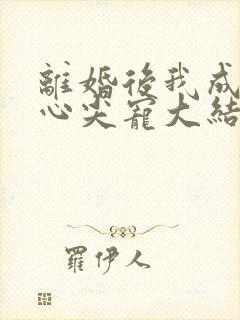 離婚後我成
心尖寵大結
羅伊人